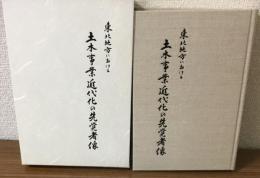 東北地方における
土木事業近代化の先覚者像
東北地方における
土木事業近代化の先覚者像